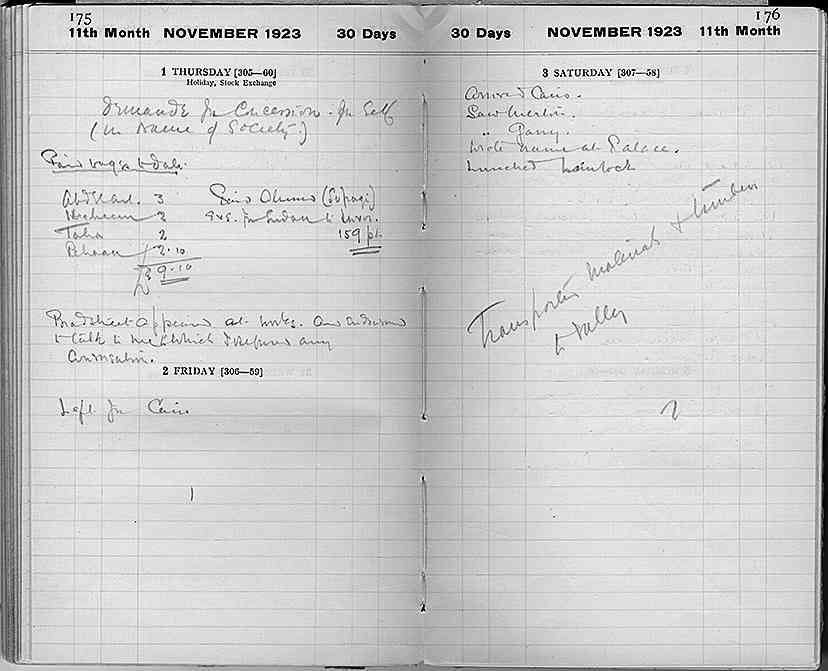 175
11th Month NOVEMBER 1923 30 Days
1 THURSDAY [305—60]
Holiday, Stock Exchange
Demande for Concession for Self
(in Name of Society)
Paid wages to date.
3
2
2
2.10
£ 9.10
Paid
159 pt.
Bradstreet appeared at works. And endeavoured
to talk to me which I refused any
conversation.
2 FRIDAY [306—59]
Left for Cairo
1
176
30 Days NOVEMBER 1923 11th Month
3 SATURDAY [307—58]
Arrived Cairo.
Saw Merton.
" 
Wrote name at Palace.
Lunched
Transported materials & timber
to valley
2